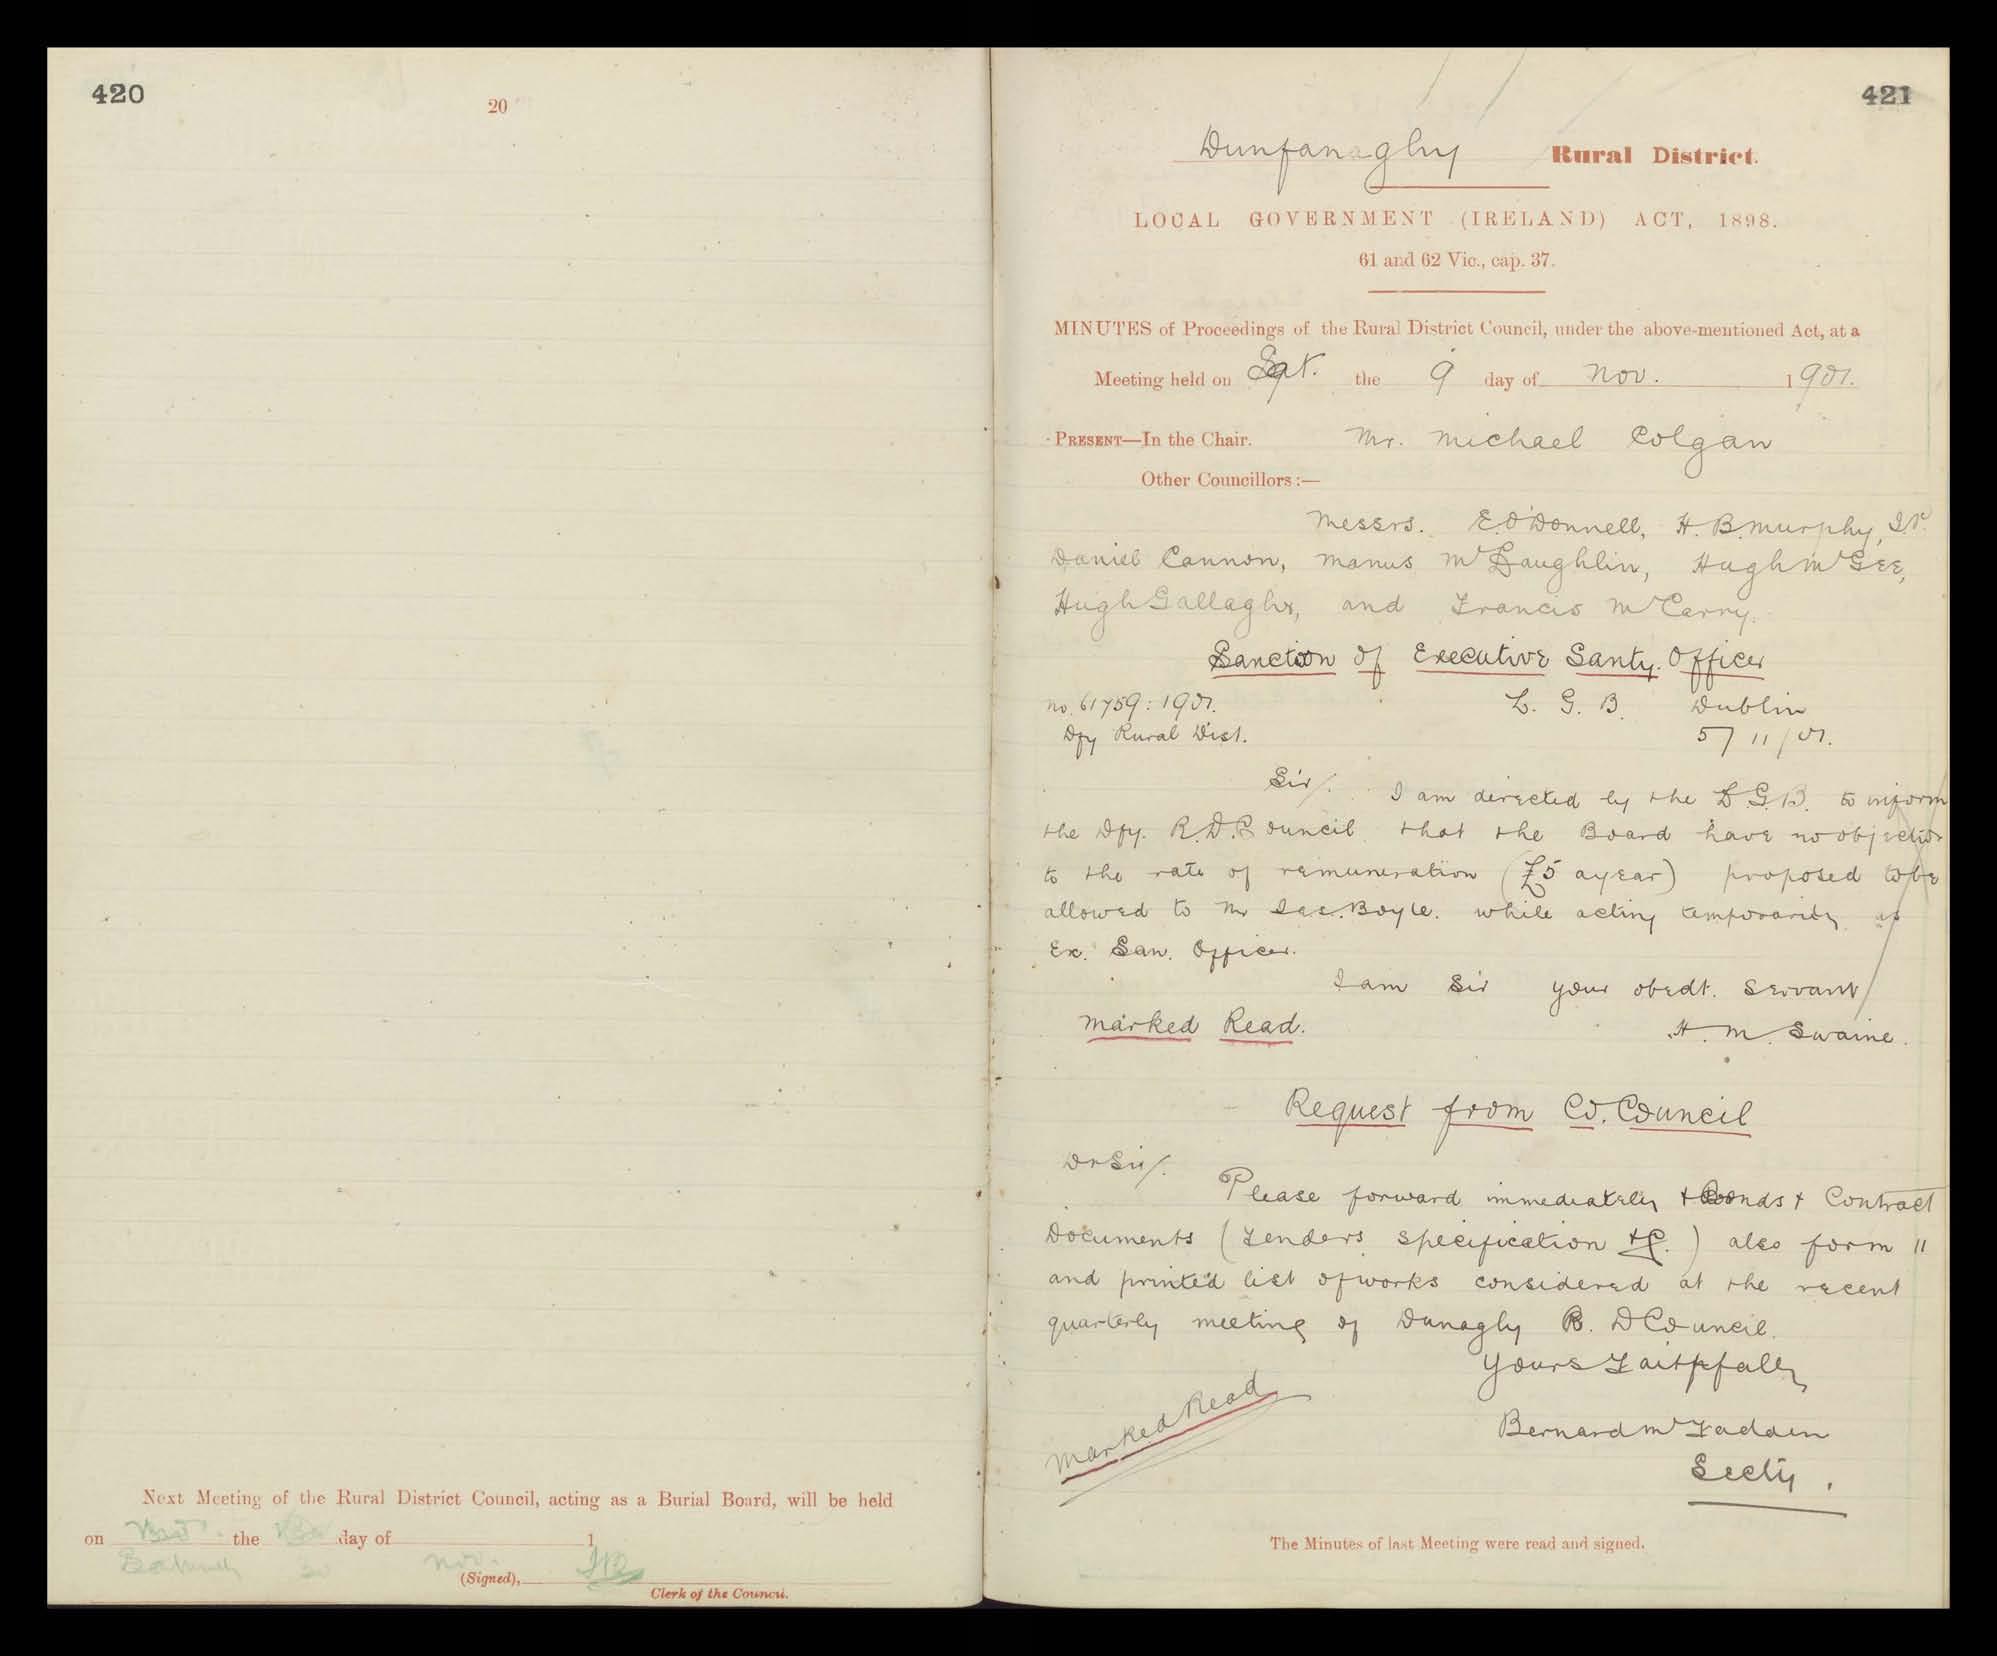 420
20
Next Meeting of the Rural District Council, acting as a Burial Board, will be held
on the day of 1
Nov.
(Signed),
Clerk of the Council.
421
Dunfanaghy Rural District.
LOCAL GOVERNMENT (IRELAND) ACT, 1898.
61 and 62 Vic., cap. 37.
MINUTES of Proceedings of the Rural District Council, under the above-mentioned Act, at a
Meeting held on Sat. the 9 day of Nov. 1901.
PRESENT—In the Chair. Mr. Michael Colgan
Other Councillors:—
Messrs. E. O'Donnell, H. B. Murphy, J.P.
Daniel Cannon, Manus McLaughlin, Hugh McGee,
Hugh Gallagher, and Francis McCarry.
Sanction of Executive Santy. Officer
No. 61759: 1901. L. G. B. Dublin
Dfy Rural Dist. 5/11/01.
Sir/. I am directed by the L.G.B. to inform
the Dfy. R.D. Council that the Board have no objection
to the rate of remuneration (£5 a year) proposed to be
allowed to Mr Jas. Boyle. while acting temporarily as
Ex. San. Officer.
I am Sir your obedt. Servant
Marked Read. H. M. Swaine.
Request from Co. Council
Dr Sir/.
Please forward immediately + Bonds + Contract
Documents (Tenders Specification &c.) also form 11
and printed list of works considered at the recent
quarterly meeting of Dunaghy R. D Council.
Yours Faithfully
Marked Read
Bernard McFadden
Secty.
The Minutes of last Meeting were read and signed.